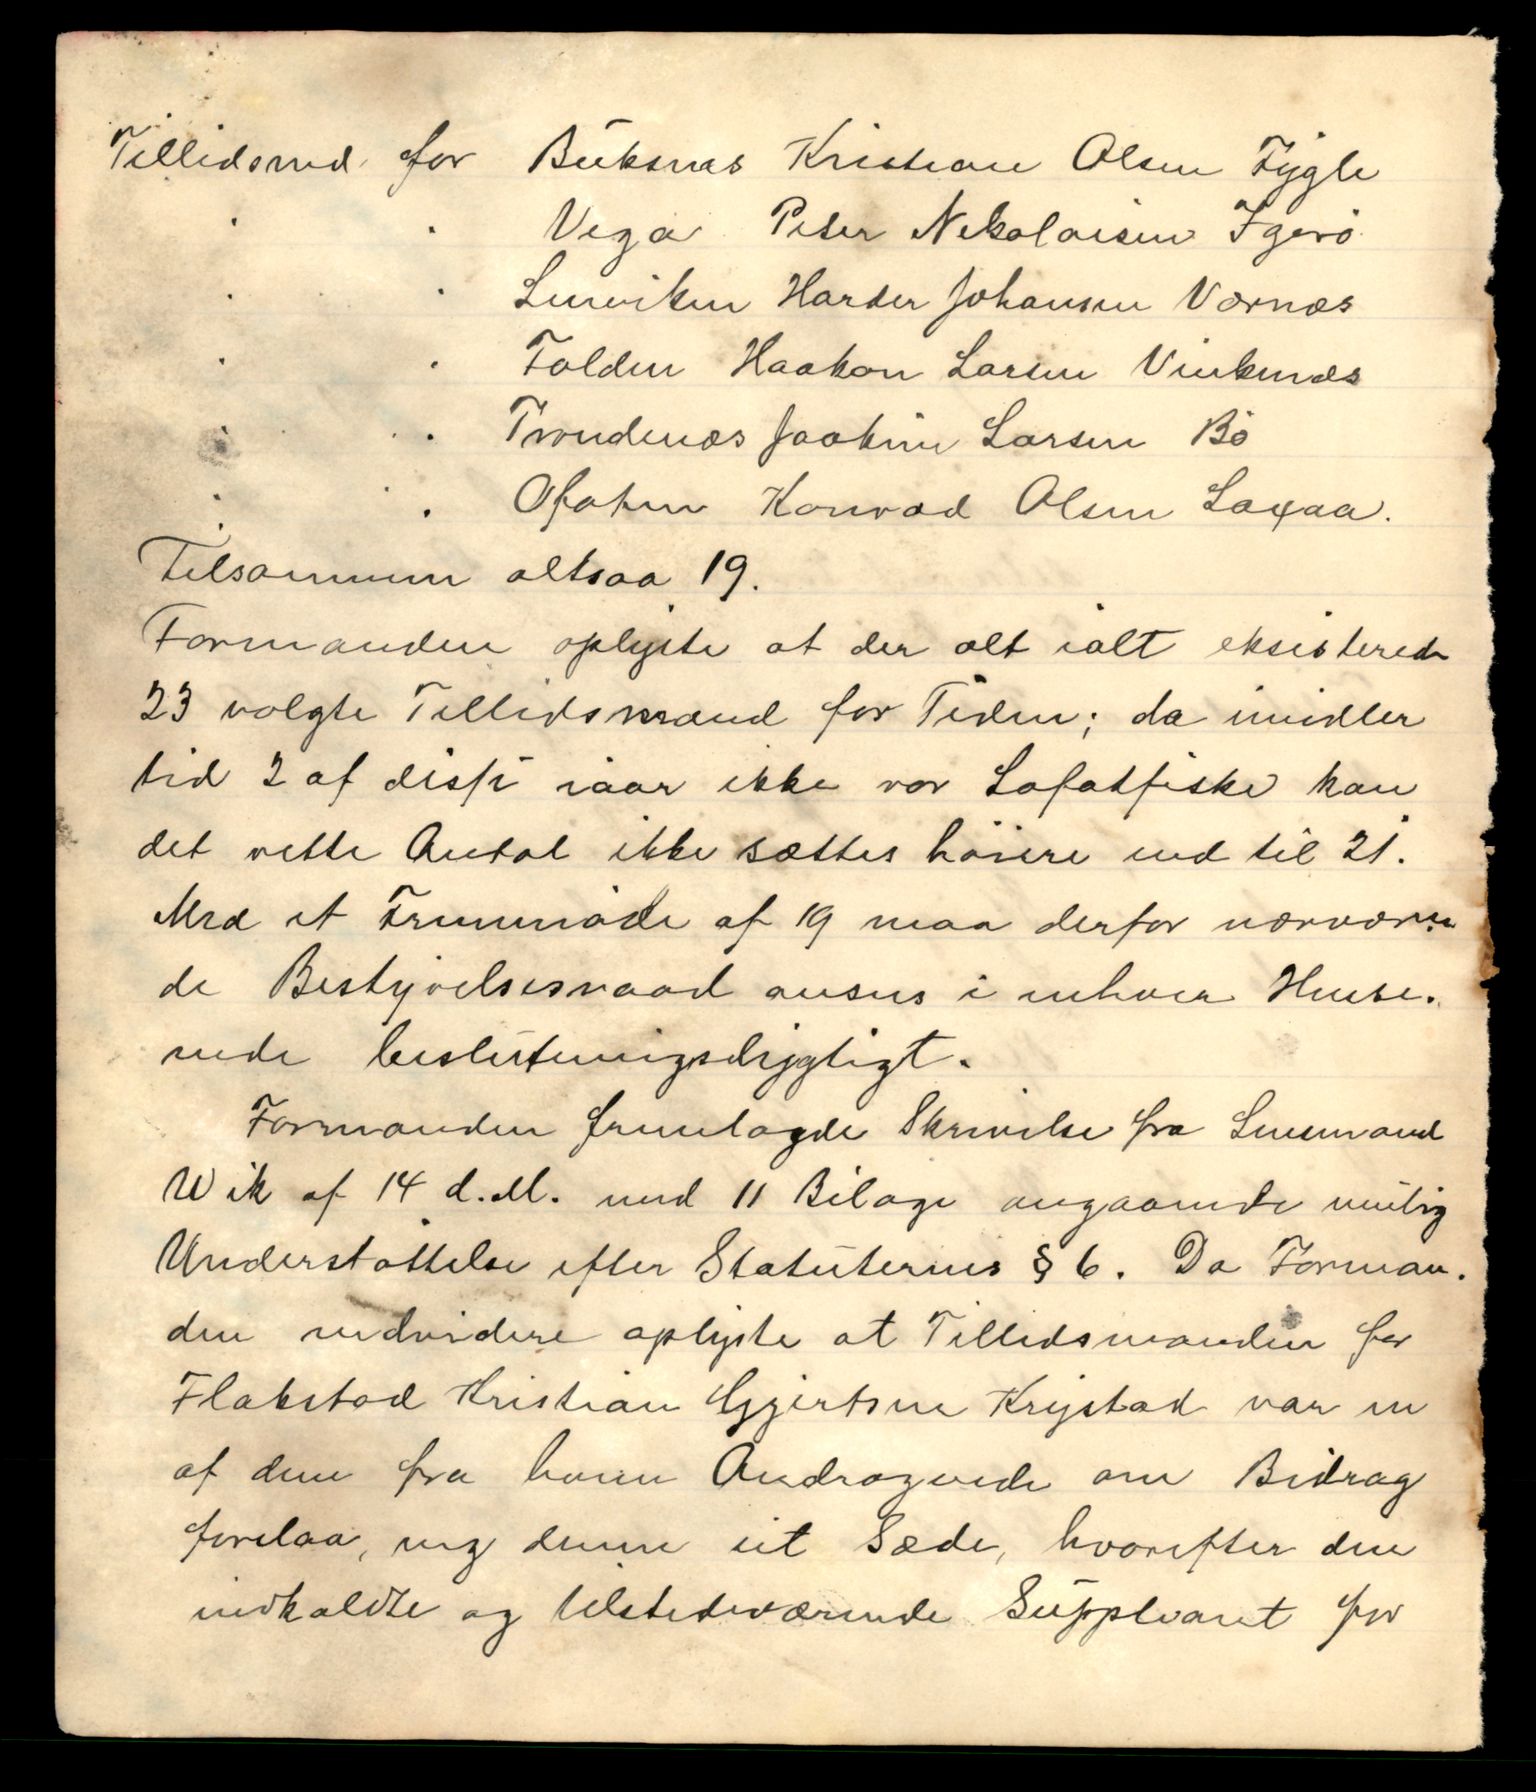 Tillidsmd. for Buksnæs Kristian Olsen Fygle
" " Vega Peter Nikolaisen Igerø
" " Lenviken Harder Johansen Værnæs
" " Folden Haakon Larsen Vinkenæs
" " Trondenæs Joakim Larsen Bø
" " Ofoten Konrad Olsen Laxaa.
Tilsammen altsaa 19.
Formanden oplyste at der alt ialt eksisterede
23 valgte Tillidsmænd for Tiden; da imidler
tid 2 af disse iaar ikke var Lofotfiske kan
det rette Antal ikke sættes høiere end til 21.
Med et Fremmøde af 19 maa derfor nærværen
de Bestyrelsesraad ansees i enhver Hense-
ende beslutningsdygtigt.
Formanden fremlagde Skrivelse fra Lensmand
Wik af 14 d.M. med 11 Bilage angaaende mulig
Understøttelse efter Statuternes § 6. Da Forman-
den endvidere oplyste at Tillidsmanden for
Flakstad Kristian Gjertsen Krystad var en
af dem fra hvem Andragende om Bidrag
forelaa, veg denne sit Sæde, hvorefter den
indkaldte og tilstedeværende Suppleant for